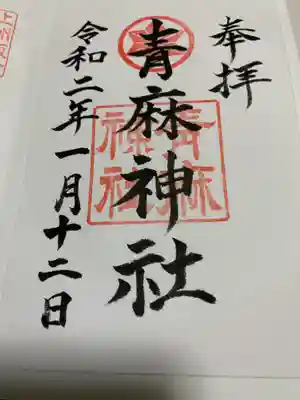 奉拝
青麻神社
令和二年一月十二日
青麻
神社